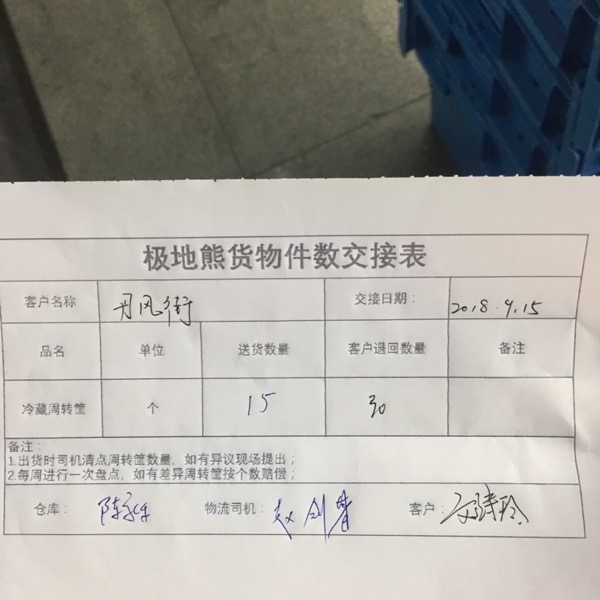 极地熊货物件数交接表
客户名称 丹凤街 交接日期： 2018.9.15
品名 单位 送货数量 客户退回数量 备注
冷藏周转筐 个 15 30
备注：
1.出货时司机清点周转筐数量，如有异议现场提出；
2.每周进行一次盘点，如有差异周转筐按个数赔偿；
仓库： 物流司机： 客户：